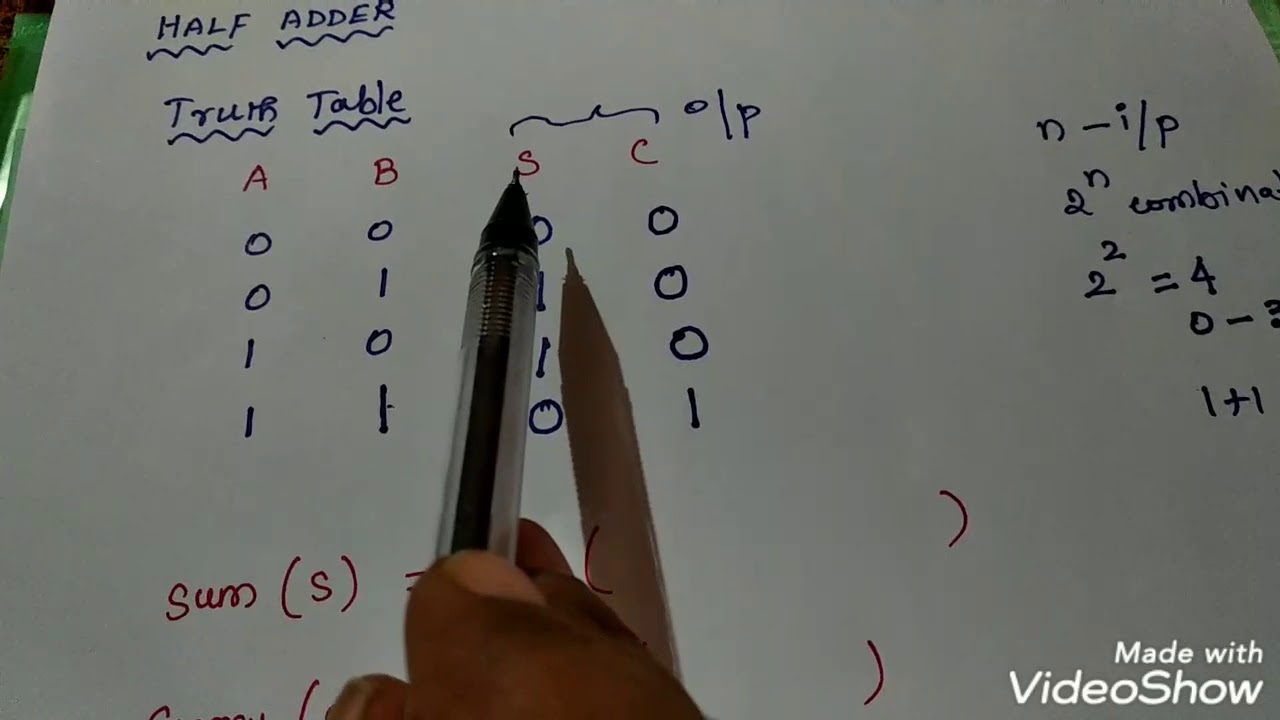 HALF ADDER
Truth Table
o/p
A B S C
0 0 0 0
0 1 1 0
1 0 1 0
1 1 0 1
n - i/p
2^n
2^2 = 4
0 -
1+1
Sum (S) = ( )
( )
Made with
VideoShow